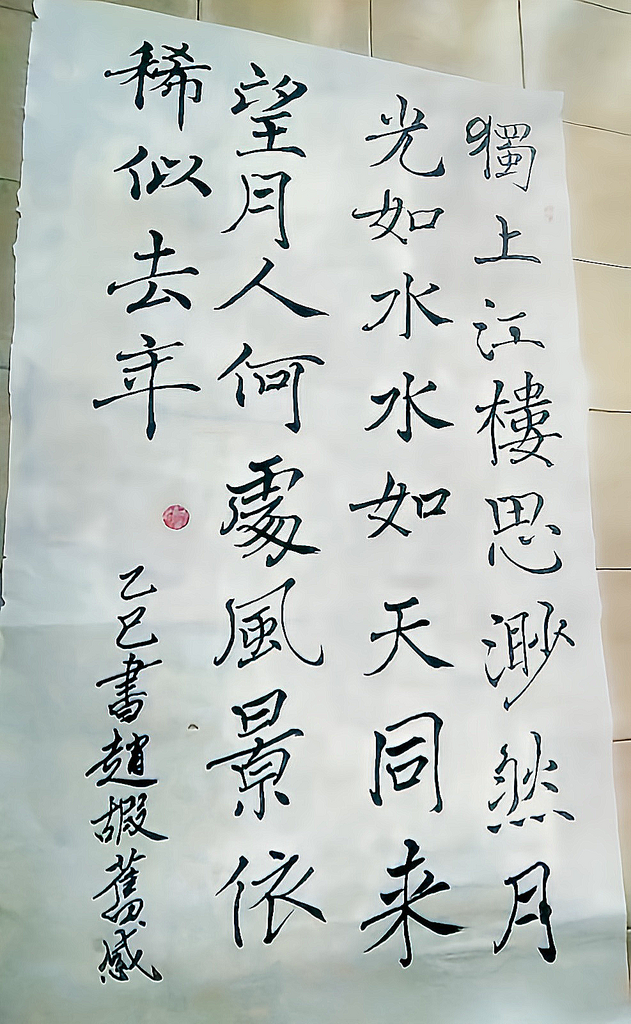 獨上江樓思渺然月
光如水水如天同来
望月人何處風景依
稀似去年
乙巳書趙嘏舊感